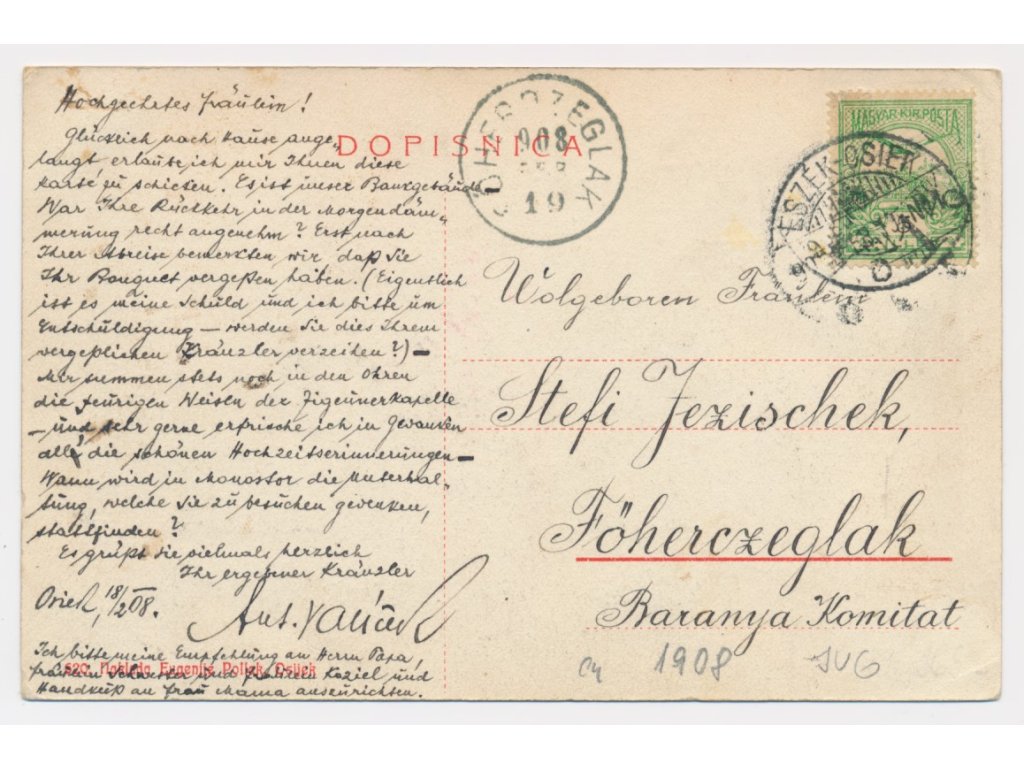 Hochgeehrtes Fräulein!
Glücklich nach Hause ange-
langt erlaube ich mir Ihnen diese
Karte zu schicken. Es ist unser Bankgebäude
War Ihre Rückkehr in der Morgendäm-
merung recht angenehm? Erst nach
Ihrer Abreise bemerkten wir, daß Sie
Ihr Bouquet vergeßen haben. (Eigentlich
ist es meine Schuld und ich bitte um
Entschuldigung — werden Sie dies Ihrem
vergeßlichen Kränzler verzeihen?) —
Mir summen stets noch in den Ohren
die feurigen Weisen der Zigeunerkapelle
— und sehr gerne erfrische ich in Gedanken
alle die schönen Hochzeitserinnerungen —
Wann wird in Monostor die Unterhal-
tung, welche Sie zu besuchen gedenken,
stattfinden?
Es grüßt Sie vielmals herzlich
Ihr ergebener Kränzler
Osiek, 18/2 08.
Ant.
Ich bitte meine Empfehlung an Herrn Papa,
Fräulein und Koziel und
Handkuß an Frau Mama auszurichten.
520 Naklada Eugenije Poljak, Osijek
DOPISNICA
FŐHERCZEGLAK
908
FEB
19
MAGYAR KIR. POSTA
ESZÉK-OSIEK
Wolgeboren Fräulein
Stefi Jezischek,
Föherczeglak
Baranya Komitat
1908
JUG